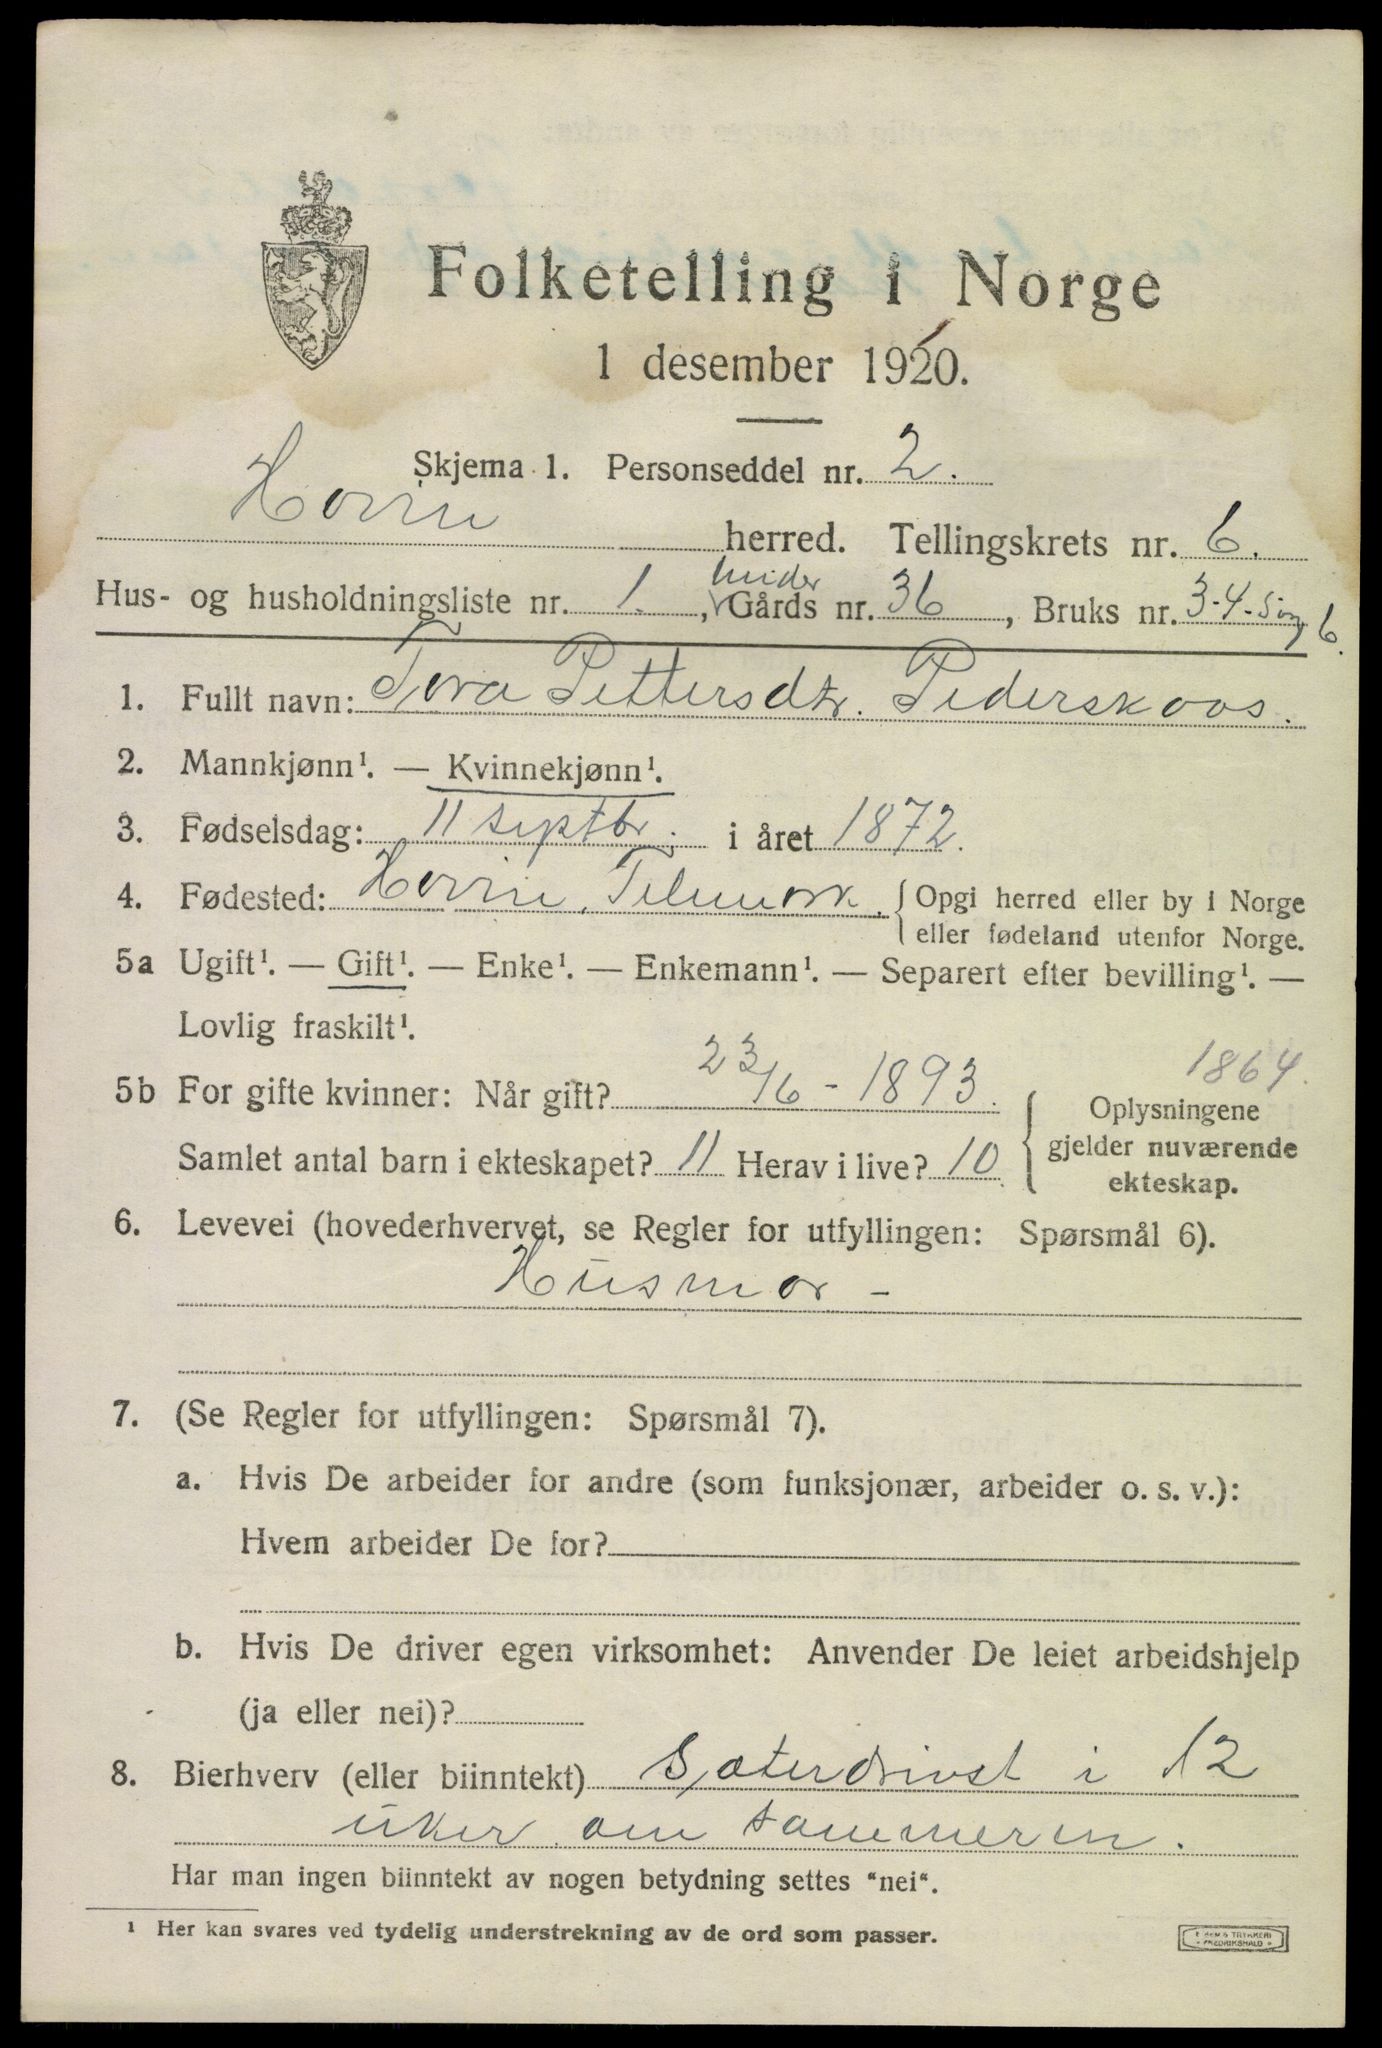 Folketelling i Norge
1 desember 1920.
Skjema 1. Personseddel nr. 2.
Hovin herred. Tellingskrets nr. 6.
under
Hus- og husholdningsliste nr. 1., Gårds nr. 36, Bruks nr. 3-4-5 og 6.
1. Fullt navn: Tora Pettersdtr. Pederskaas.
2. Mannkjønn¹. — Kvinnekjønn¹.
3. Fødselsdag: 11 septbr. i året 1872.
4. Fødested: Hovin, Telemark. { Opgi herred eller by i Norge
eller fødeland utenfor Norge.
5a Ugift¹. — Gift¹. — Enke¹. — Enkemann¹. — Separert efter bevilling¹. —
Lovlig fraskilt¹.
1864.
5b For gifte kvinner: Når gift? 23/6 - 1893.
Samlet antal barn i ekteskapet? 11 Herav i live? 10
{ Oplysningene
gjelder nuværende
ekteskap.
6. Levevei (hovederhvervet, se Regler for utfyllingen: Spørsmål 6).
Husmor -
7. (Se Regler for utfyllingen: Spørsmål 7).
a. Hvis De arbeider for andre (som funksjonær, arbeider o. s. v.):
Hvem arbeider De for?
b. Hvis De driver egen virksomhet: Anvender De leiet arbeidshjelp
(ja eller nei)?
8. Bierhverv (eller biinntekt) Sæterdrivst i 12
uker om sommeren.
Har man ingen biinntekt av nogen betydning settes "nei".
¹ Her kan svares ved tydelig understrekning av de ord som passer.
TRYKKERI
FREDRIKSHALD